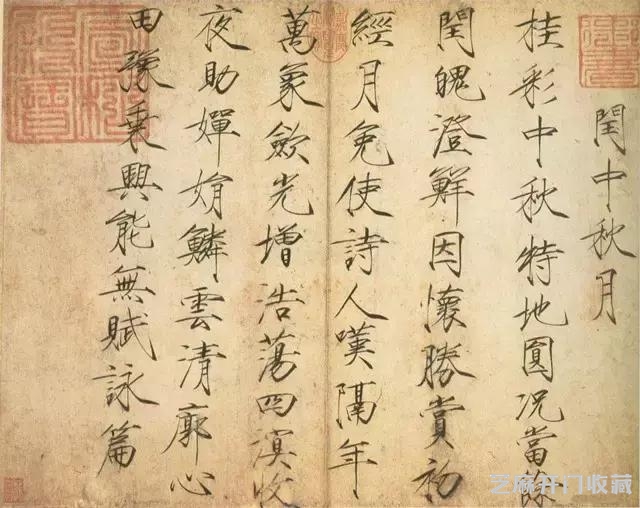 閏中秋月
桂彩中秋特地圓况當餘
閏魄澄鮮因懷勝賞初
經月免使詩人嘆隔年
萬象歛光增浩蕩四溟收
夜助嬋娟鱗雲清廓心
田豫乗興能無賦詠篇
芝麻开门收藏